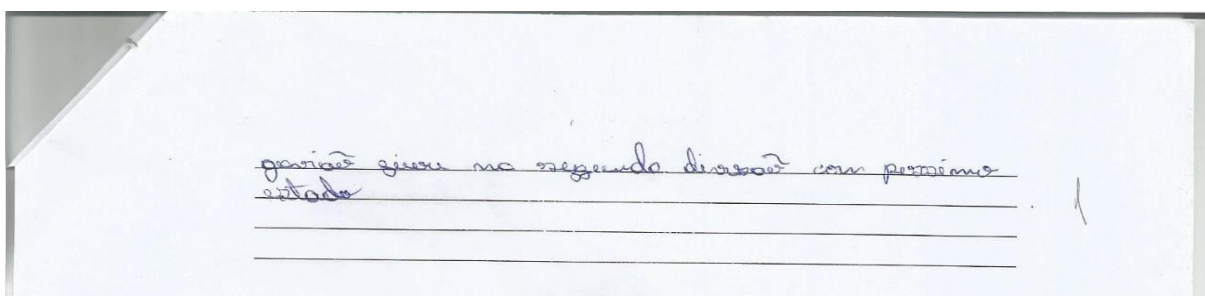 gaviaõ na segunda divisaõ com pessimo
estado
. 1